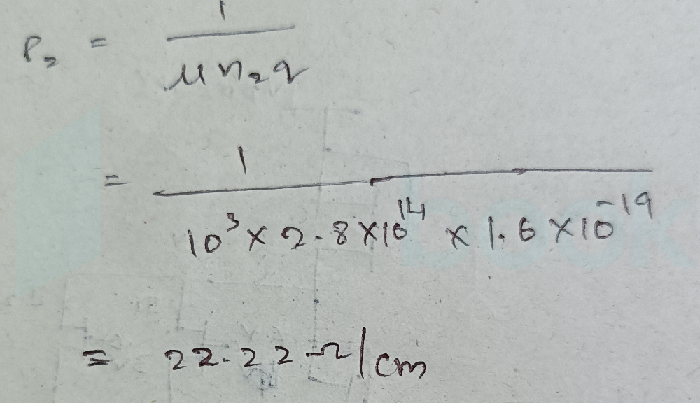 ρ₂ = 1 / μn₂q
= 1 / 10³ × 2.8 × 10¹⁴ × 1.6 × 10⁻¹⁹
= 22.22 Ω/cm